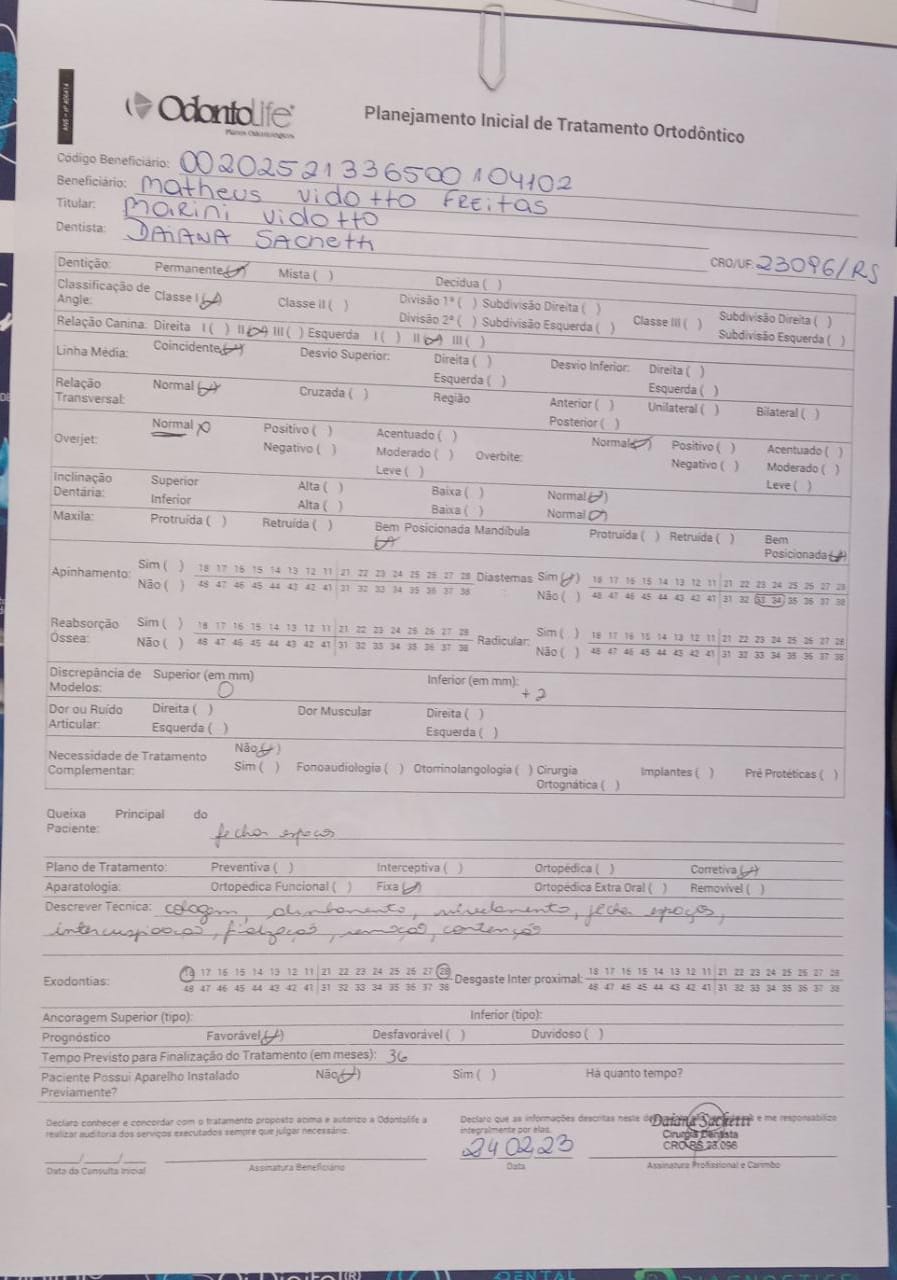 ANS - nº 406414
OdontoLife
Planos Odontológicos
Planejamento Inicial de Tratamento Ortodôntico
Código Beneficiário: 00202521336500104102
Beneficiário: Matheus Vidotto Freitas
Titular: Marini Vidotto
Dentista: DAIANA Sachetti CRO/UF: 23096/RS
Dentição: Permanente (x) Mista ( ) Decídua ( )
Classificação de Angle: Classe I (x) Classe II ( ) Divisão 1ª ( ) Subdivisão Direita ( ) Divisão 2ª ( ) Subdivisão Esquerda ( ) Classe III ( ) Subdivisão Direita ( ) Subdivisão Esquerda ( )
Relação Canina: Direita I ( ) II (x) III ( ) Esquerda I ( ) II (x) III ( )
Linha Média: Coincidente (x) Desvio Superior: Direita ( ) Esquerda ( ) Desvio Inferior: Direita ( ) Esquerda ( )
Relação Transversal: Normal (x) Cruzada ( ) Região Anterior ( ) Posterior ( ) Unilateral ( ) Bilateral ( )
Overjet: Normal (x) Positivo ( ) Negativo ( ) Acentuado ( ) Moderado ( ) Leve ( ) Overbite: Normal (x) Positivo ( ) Negativo ( ) Acentuado ( ) Moderado ( ) Leve ( )
Inclinação Dentária: Superior Alta ( ) Baixa ( ) Normal (x)
Inferior Alta ( ) Baixa ( ) Normal (x)
Maxila: Protruída ( ) Retruída ( ) Bem Posicionada (x) Mandíbula Protruída ( ) Retruída ( ) Bem Posicionada (x)
Apinhamento: Sim ( ) 18 17 16 15 14 13 12 11 21 22 23 24 25 26 27 28 Diastemas Sim (x) 18 17 16 15 14 13 12 11 21 22 23 24 25 26 27 28
Não ( ) 48 47 46 45 44 43 42 41 31 32 33 34 35 36 37 38 Não ( ) 48 47 46 45 44 43 42 41 31 32 33 34 35 36 37 38
Reabsorção Óssea: Sim ( ) 18 17 16 15 14 13 12 11 21 22 23 24 25 26 27 28 Radicular: Sim ( ) 18 17 16 15 14 13 12 11 21 22 23 24 25 26 27 28
Não ( ) 48 47 46 45 44 43 42 41 31 32 33 34 35 36 37 38 Não ( ) 48 47 46 45 44 43 42 41 31 32 33 34 35 36 37 38
Discrepância de Modelos: Superior (em mm) 0 Inferior (em mm): +2
Dor ou Ruído Articular: Direita ( ) Esquerda ( ) Dor Muscular Direita ( ) Esquerda ( )
Necessidade de Tratamento Complementar: Não (x) Sim ( ) Fonoaudiologia ( ) Otorrinolangologia ( ) Cirurgia Ortognática ( ) Implantes ( ) Pré Protéticas ( )
Queixa Principal do Paciente: fechar espaços
Plano de Tratamento: Preventiva ( ) Interceptiva ( ) Ortopédica ( ) Corretiva (x)
Aparatologia: Ortopédica Funcional ( ) Fixa (x) Ortopédica Extra Oral ( ) Removível ( )
Descrever Técnica: colagem, alinhamento, nivelamento, fecha espaços,
intercuspidação, finalização, remoção, contenção
Exodontias: 18 17 16 15 14 13 12 11 21 22 23 24 25 26 27 28 Desgaste Inter proximal: 18 17 16 15 14 13 12 11 21 22 23 24 25 26 27 28
48 47 46 45 44 43 42 41 31 32 33 34 35 36 37 38 48 47 46 45 44 43 42 41 31 32 33 34 35 36 37 38
Ancoragem Superior (tipo): Inferior (tipo):
Prognóstico Favorável (x) Desfavorável ( ) Duvidoso ( )
Tempo Previsto para Finalização do Tratamento (em meses): 36
Paciente Possui Aparelho Instalado Previamente? Não (x) Sim ( ) Há quanto tempo?
Declaro conhecer e concordar com o tratamento proposto acima e autorizo a Odontolife a realizar auditoria dos serviços executados sempre que julgar necessário.
Declaro que as informações descritas neste e me responsabilizo integralmente por elas.
Daiana Sachetti
Cirurgiã Dentista
CRO RS 23.096
24 02 23
Data da Consulta Inicial Assinatura Beneficiário Data Assinatura Profissional e Carimbo